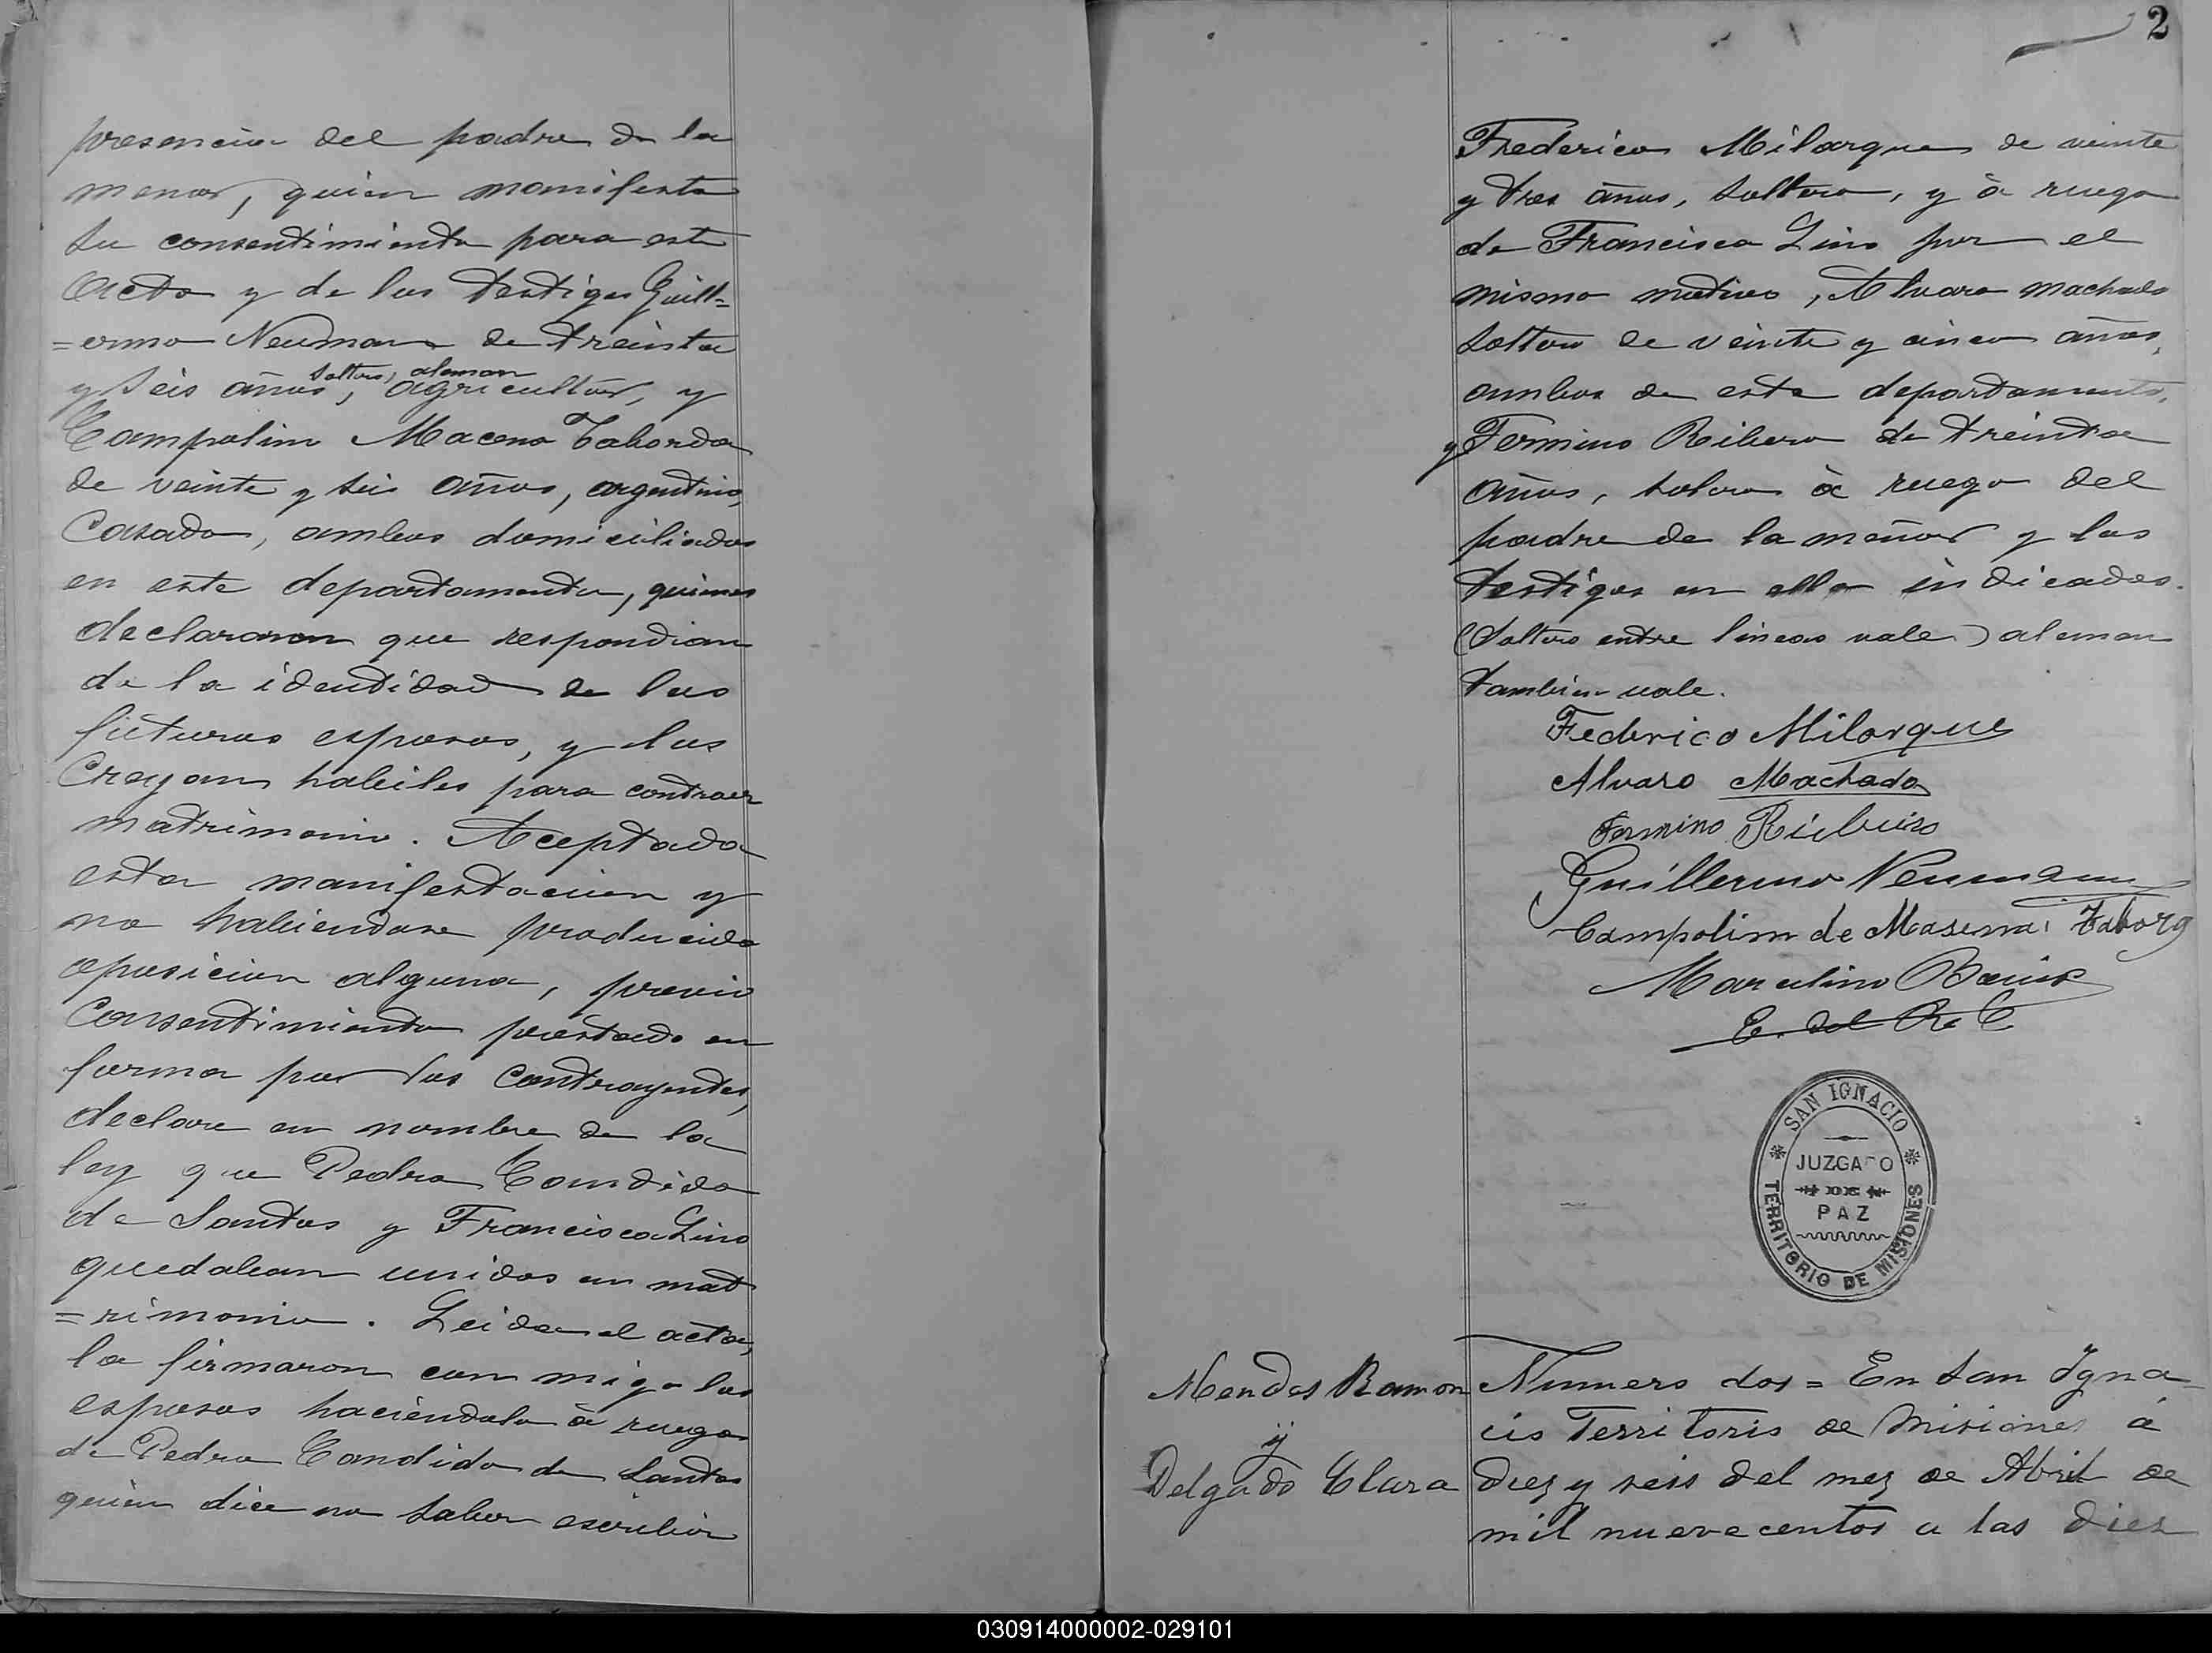 presencia del padre de la
menor, quien manifesto
su consentimiento para este
acto y de los testigos Guill=
=ermo Neuman de treinta
soltero, aleman
y seis años, agricultor, y
Campolim Maceno Taborda
de veinte y seis años, argentino,
casado, ambos domiciliados
en este departamento, quienes
declararon que respondian
de la identidad de los
futuros esposos, y los
creyan habiles para contraer
matrimonio. Aceptada
esta manifestacion y
no habiendose producido
oposicion alguna, previo
consentimiento prestado en
forma por los contrayentes,
declare en nombre de la
ley que Pedro Candido
de Santos y Francisca Lino
quedaban unidos en mat
=rimonio. Leida el acta,
la firmaron con migo los
esposos haciendolo à ruego
de Pedro Candido de Santos
quien dice no saber escribir
2
Frederico Milarque de veinte
y tres años, soltero, y à ruego
de Francisca Lino por el
mismo motivo, Alvaro Machado
soltero de veinte y cinco años,
ambos de este departamento,
y Fermino Ribero de treinta
años, soltero à ruego del
padre de la menor y los
testigos en ella indicados.
(Soltero entre lineas vale) aleman
tambien vale.
Federico Milarque
Alvaro Machado
Fermino Ribeiro
Guillermo Neumann
Campolim de Masena Taborg
Marcelino Bouix
E. del R. C
SAN IGNACIO
JUZGADO
DE
PAZ
TERRITORIO DE MISIONES
Mendes Ramon
y
Delgado Clara
Numero dos = En San Igna
cio Territorio de Misiones á
diez y seis del mez de Abril de
mil nuevecentos a las diez
030914000002-029101